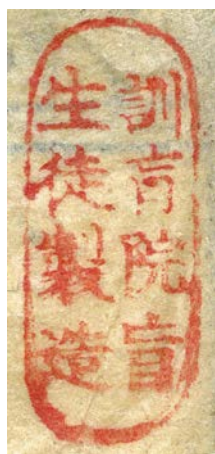 訓盲院盲
生徒製造